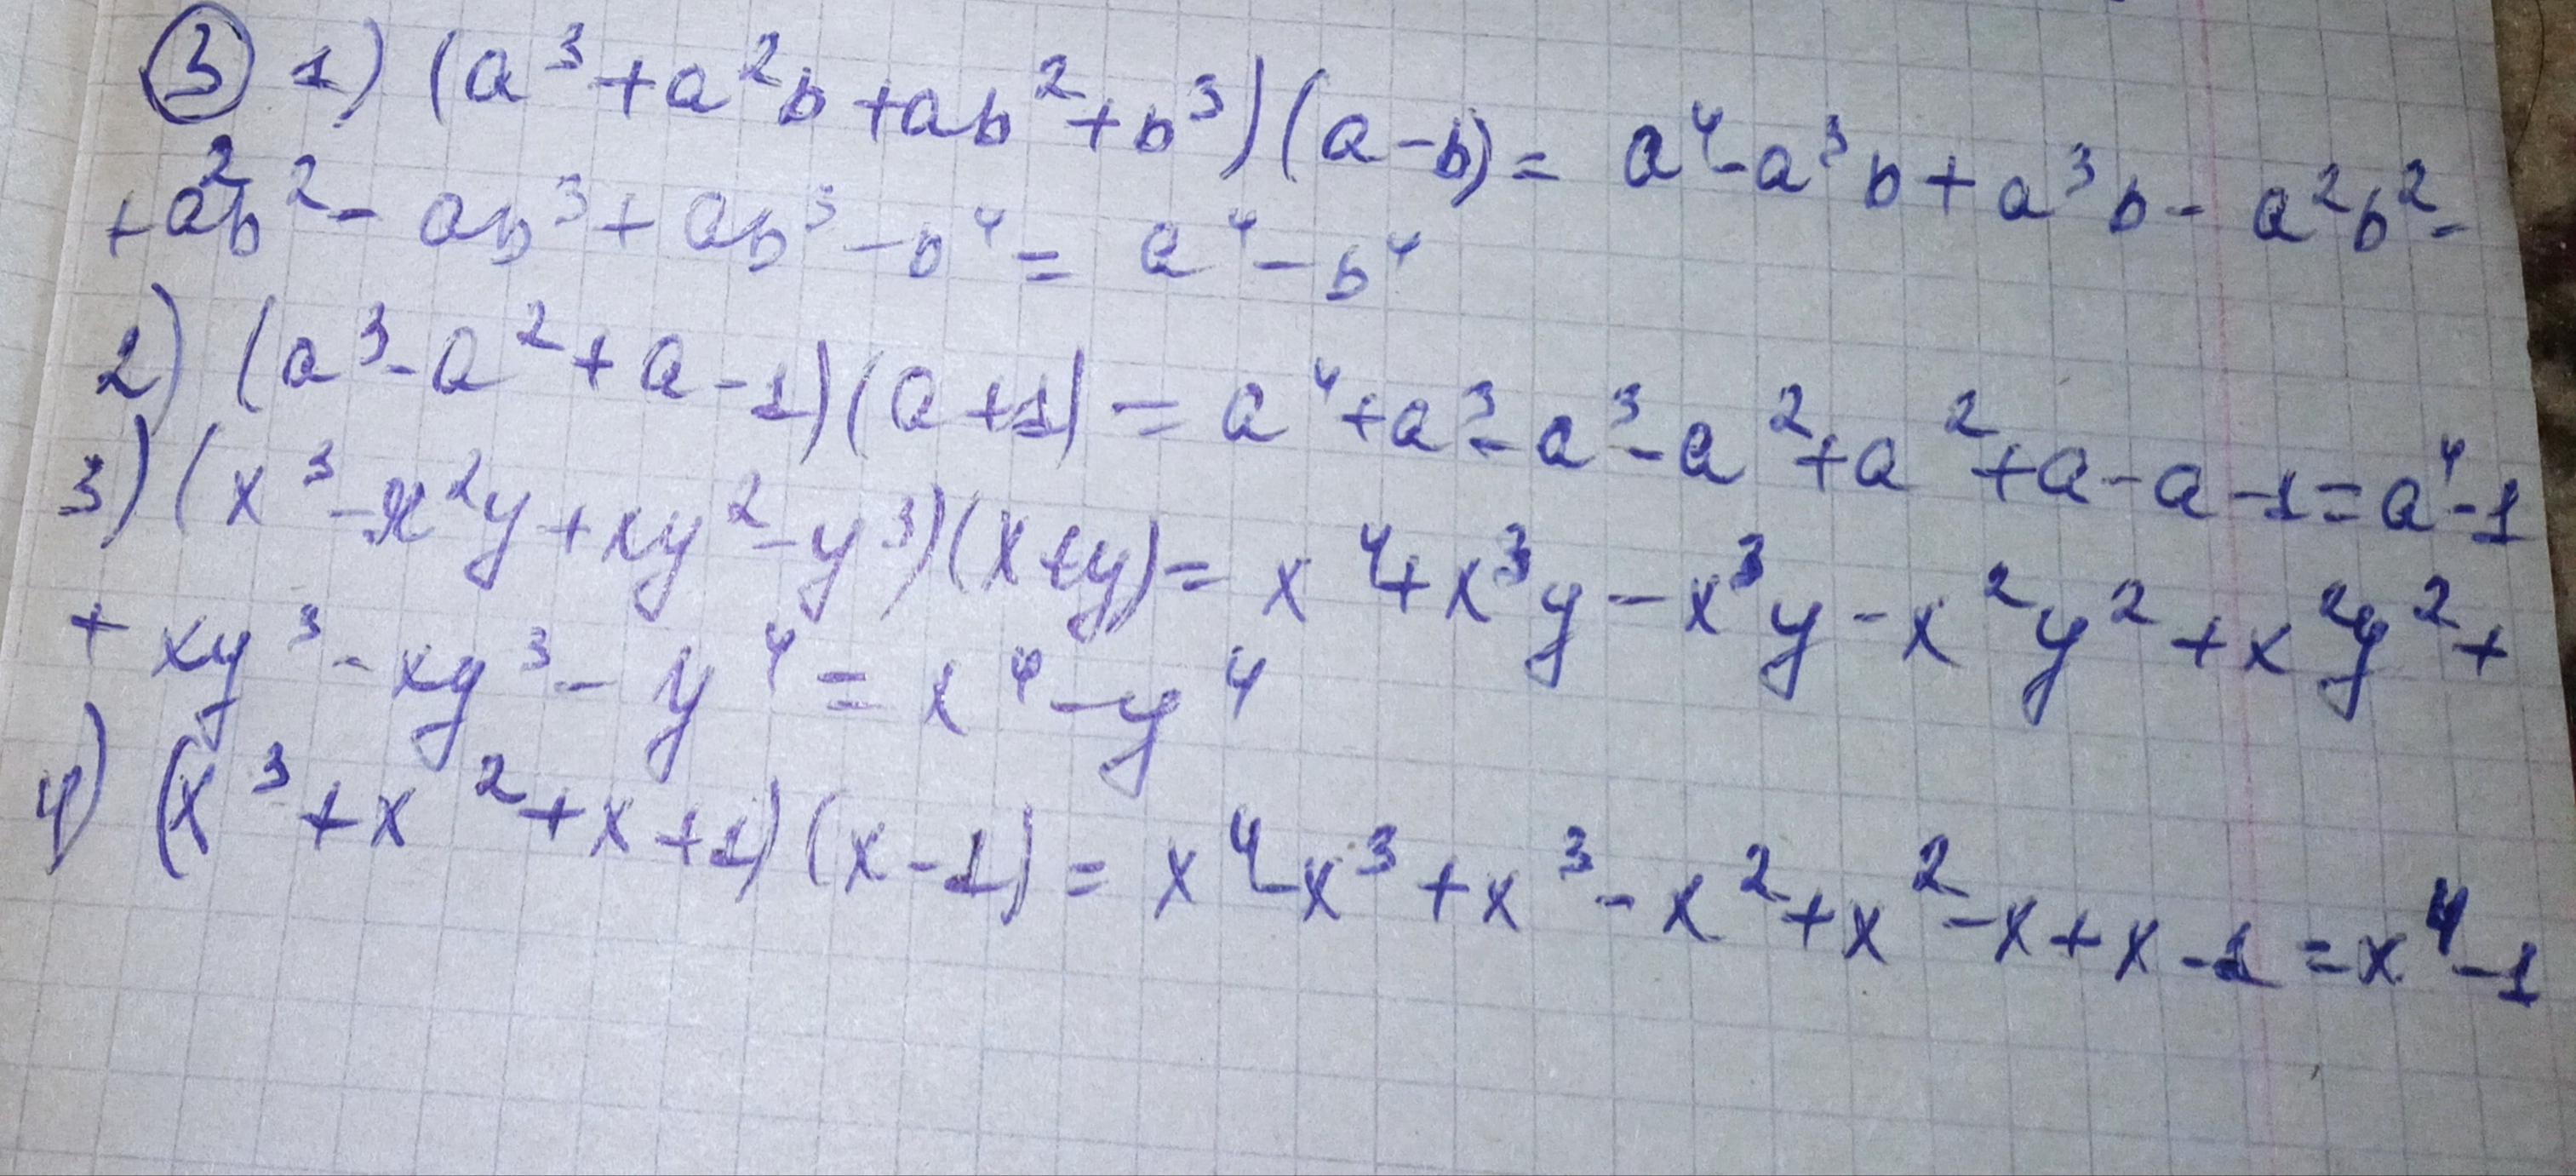 ③ 1) (a³+a²b+ab²+b³)(a-b)= a⁴-a³b+a³b-a²b²-
+a²b²-ab³+ab³-b⁴= a⁴-b⁴
2) (a³-a²+a-1)(a+1)=a⁴+a³-a³-a²+a²+a-a-1=a⁴-1
3) (x³-x²y+xy²-y³)(x+y)= x⁴+x³y-x³y-x²y²+x²y²+
+xy³-xy³-y⁴=x⁴-y⁴
4) (x³+x²+x+1)(x-1)=x⁴-x³+x³-x²+x²-x+x-1=x⁴-1